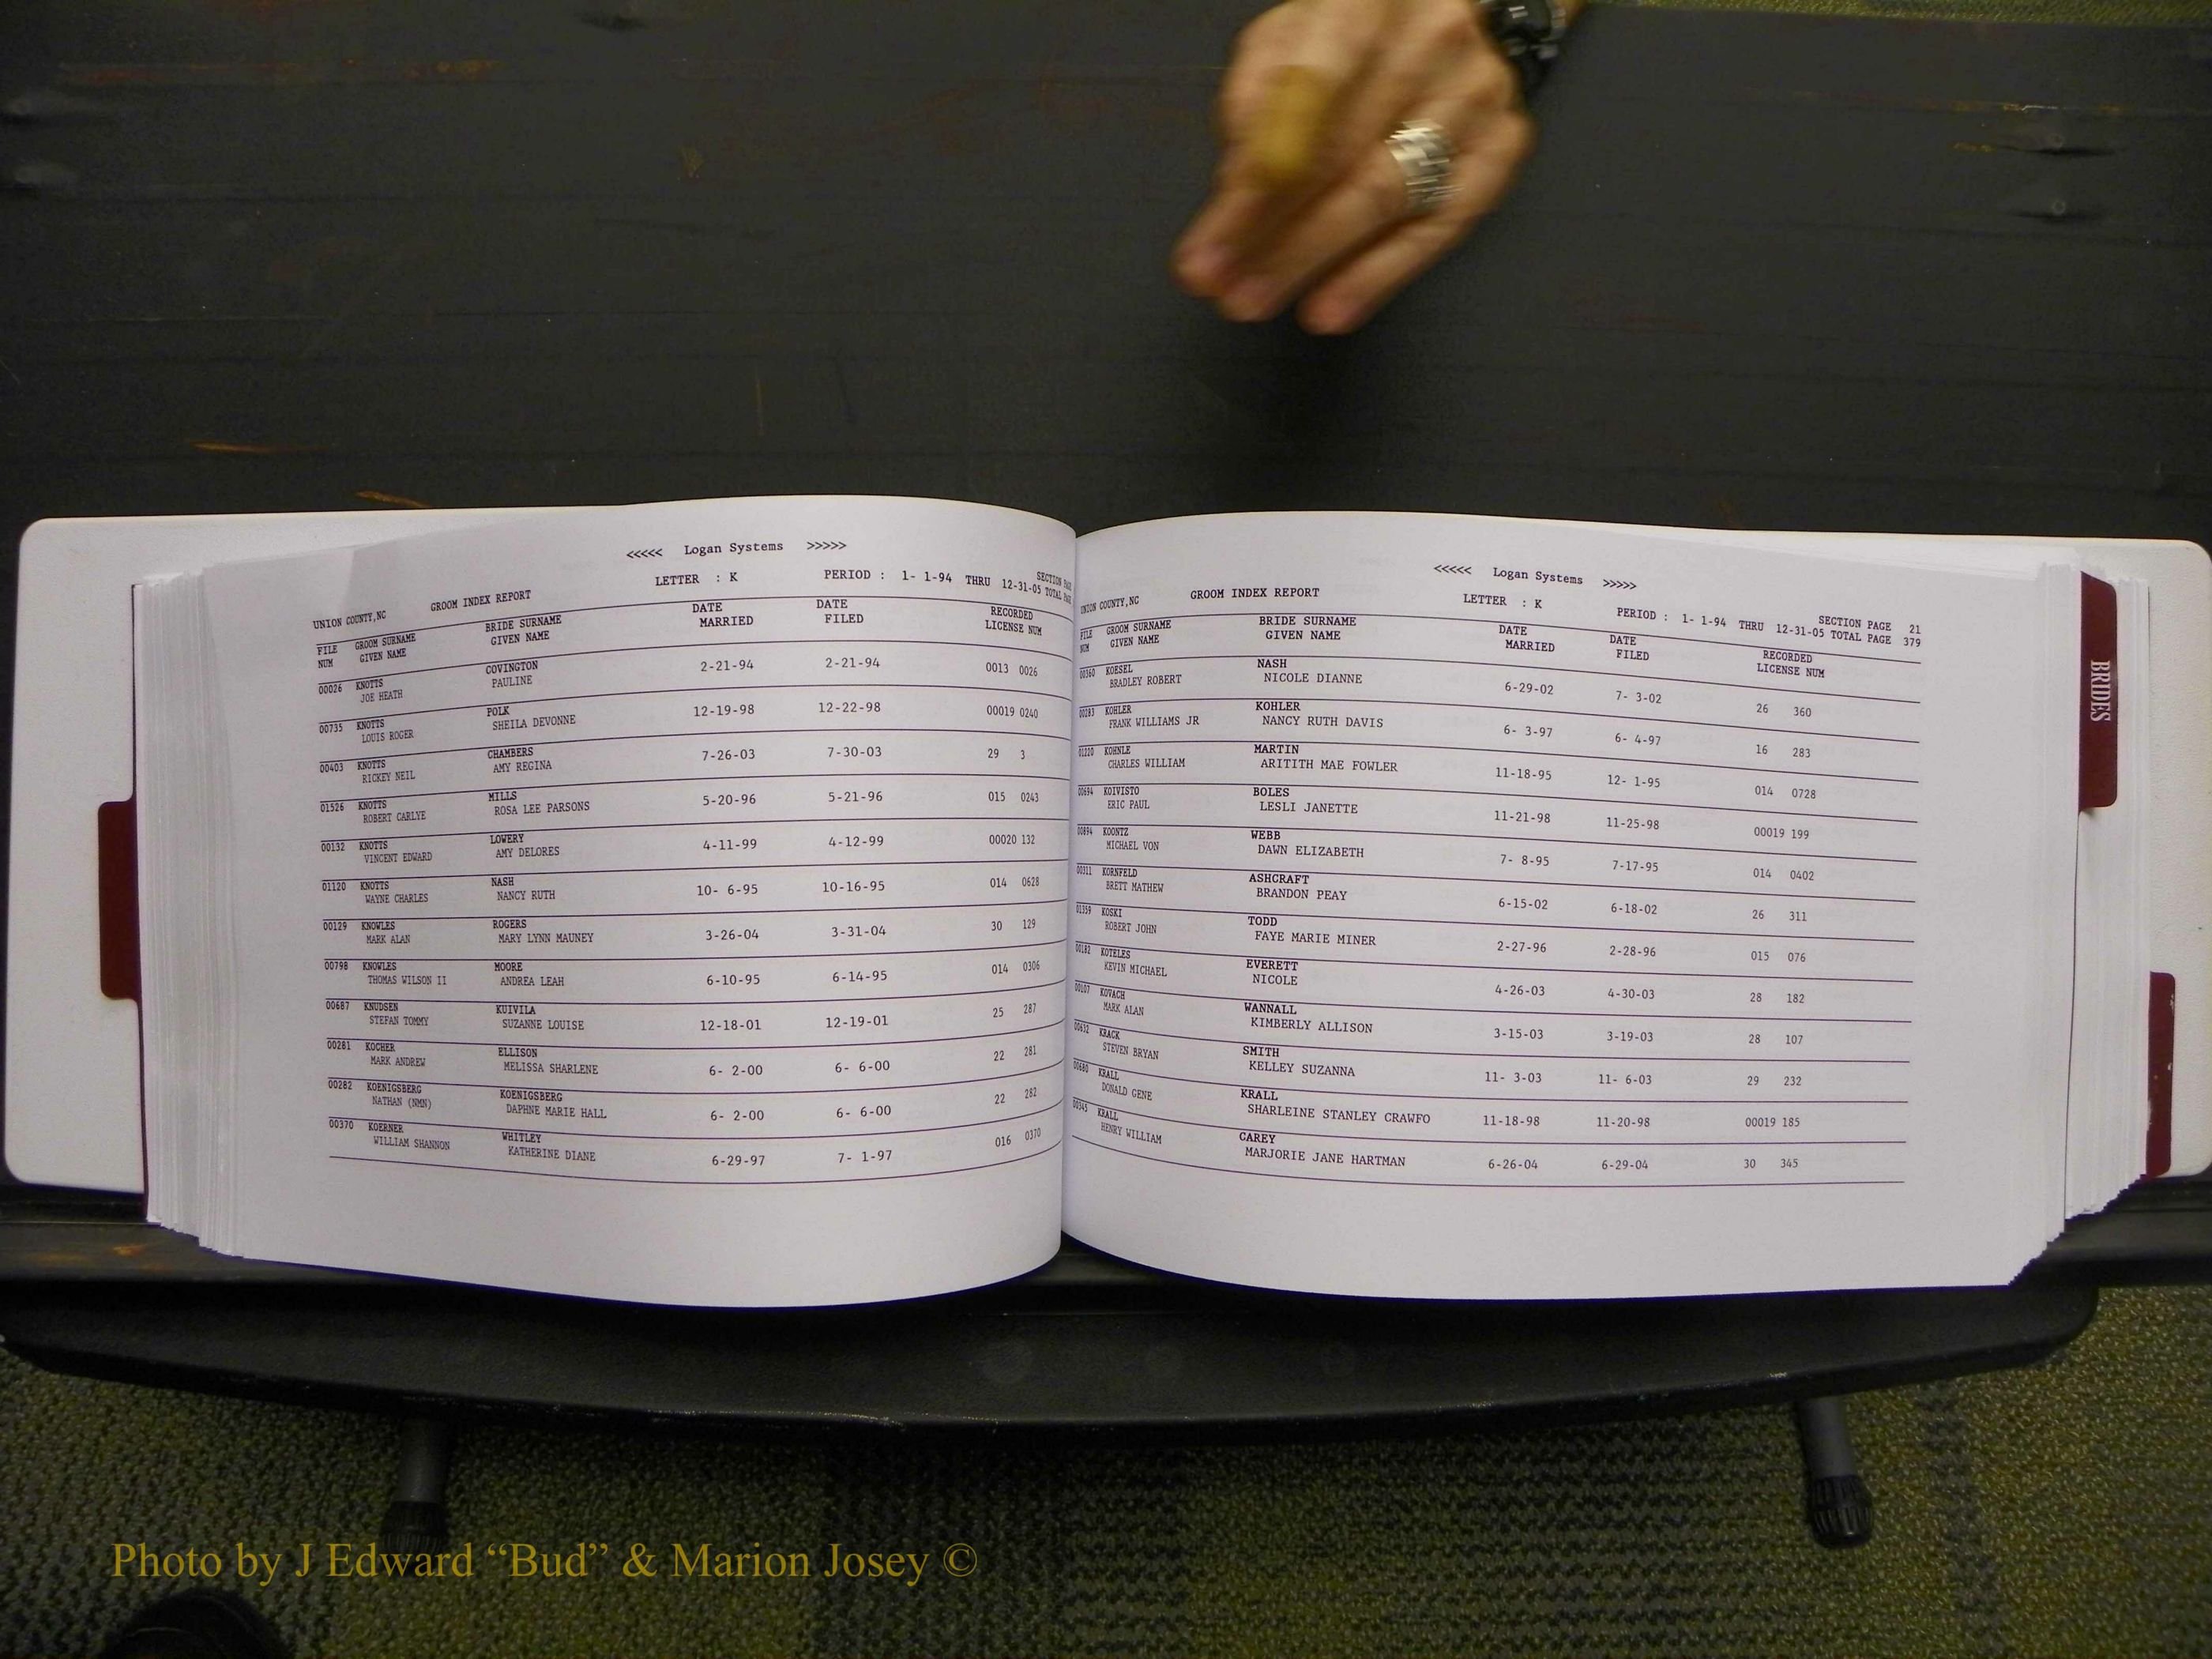 <<<<< Logan Systems >>>>>
LETTER : K PERIOD : 1- 1-94 THRU 12-31-05 SECTION TOTAL
UNION COUNTY,NC GROOM INDEX REPORT
FILE GROOM SURNAME BRIDE SURNAME DATE DATE RECORDED
NUM GIVEN NAME GIVEN NAME MARRIED FILED LICENSE NUM
00026 KNOTTS COVINGTON 2-21-94 2-21-94 0013 0026
JOE HEATH PAULINE
00735 KNOTTS POLK 12-19-98 12-22-98 00019 0240
LOUIS ROGER SHEILA DEVONNE
00403 KNOTTS CHAMBERS 7-26-03 7-30-03 29 3
RICKEY NEIL AMY REGINA
01526 KNOTTS MILLS 5-20-96 5-21-96 015 0243
ROBERT CARLYE ROSA LEE PARSONS
00132 KNOTTS LOWERY 4-11-99 4-12-99 00020 132
VINCENT EDWARD AMY DELORES
01120 KNOTTS NASH 10- 6-95 10-16-95 014 0628
WAYNE CHARLES NANCY RUTH
00129 KNOWLES ROGERS 3-26-04 3-31-04 30 129
MARK ALAN MARY LYNN MAUNEY
00798 KNOWLES MOORE 6-10-95 6-14-95 014 0306
THOMAS WILSON II ANDREA LEAH
00687 KNUDSEN KUIVILA 12-18-01 12-19-01 25 287
STEFAN TOMMY SUZANNE LOUISE
00281 KOCHER ELLISON 6- 2-00 6- 6-00 22 281
MARK ANDREW MELISSA SHARLENE
00282 KOENIGSBERG KOENIGSBERG 6- 2-00 6- 6-00 22 282
NATHAN (NMN) DAPHNE MARIE HALL
00370 KOERNER WHITLEY 6-29-97 7- 1-97 016 0370
WILLIAM SHANNON KATHERINE DIANE
<<<<< Logan Systems >>>>>
LETTER : K PERIOD : 1- 1-94 THRU 12-31-05 SECTION PAGE 21
TOTAL PAGE 379
UNION COUNTY,NC GROOM INDEX REPORT
FILE GROOM SURNAME BRIDE SURNAME DATE DATE RECORDED
NUM GIVEN NAME GIVEN NAME MARRIED FILED LICENSE NUM
00360 KOESEL NASH 6-29-02 7- 3-02 26 360
BRADLEY ROBERT NICOLE DIANNE
00283 KOHLER KOHLER 6- 3-97 6- 4-97 16 283
FRANK WILLIAMS JR NANCY RUTH DAVIS
01220 KOHNLE MARTIN 11-18-95 12- 1-95 014 0728
CHARLES WILLIAM ARITITH MAE FOWLER
00694 KOIVISTO BOLES 11-21-98 11-25-98 00019 199
ERIC PAUL LESLI JANETTE
00894 KOONTZ WEBB 7- 8-95 7-17-95 014 0402
MICHAEL VON DAWN ELIZABETH
00311 KORNFELD ASHCRAFT 6-15-02 6-18-02 26 311
BRETT MATHEW BRANDON PEAY
01359 KOSKI TODD 2-27-96 2-28-96 015 076
ROBERT JOHN FAYE MARIE MINER
00182 KOTELES EVERETT 4-26-03 4-30-03 28 182
KEVIN MICHAEL NICOLE
00107 KOVACH WANNALL 3-15-03 3-19-03 28 107
MARK ALAN KIMBERLY ALLISON
00632 KRACK SMITH 11- 3-03 11- 6-03 29 232
STEVEN BRYAN KELLEY SUZANNA
00680 KRALL KRALL 11-18-98 11-20-98 00019 185
DONALD GENE SHARLEINE STANLEY CRAWFO
00345 KRALL CAREY 6-26-04 6-29-04 30 345
HENRY WILLIAM MARJORIE JANE HARTMAN
BRIDES
Photo by J Edward “Bud” & Marion Josey ©